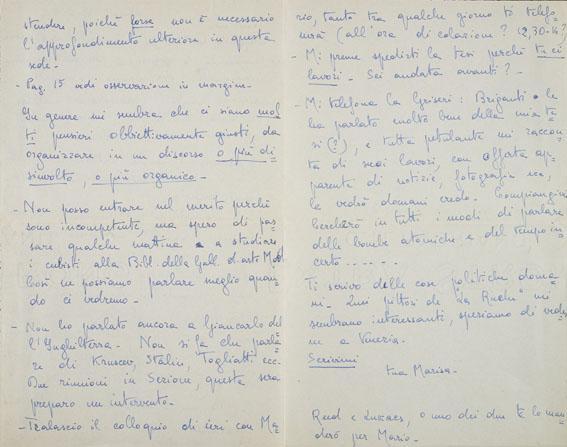 stendere, poiché forse non è necessario
l'approfondimento ulteriore in questa
sede -
- Pag. 15 vedi osservazione in margine -
In genere mi sembra che ci siano mol
ti pensieri obbiettivamente giusti, da
organizzare in un discorso o più di
sinvolto, o più organico -
- Non posso entrare nel merito perché
sono incompetente, ma spero di pas
sare qualche mattina a studiare
i cubisti alla Bibl. della Gall. d'arte Mod.
Così ne possiamo parlare meglio quan
do ci vedremo -
- Non ho parlato ancora a Giancarlo del
l'Inghilterra - Non si fa che parla
re di Kruscev, Stalin, Togliatti ecc.
Due riunioni in Sezione, questa sera
preparo un intervento -
- Tralascio il colloquio di ieri con Ma
rio, tanto tra qualche giorno ti telefo
nerà (all'ora di colazione? 12,30-14?)
- Mi preme spedisti la tesi perché tu ci
lavori - Sei andata avanti? -
- Mi telefona la Griseri: Briganti le
ha parlato molto bene della mia te
si (?), e tutta petulante mi raccon
ta di suoi lavori, con offerta ap
parente di notizie, fotografie ecc,
la vedrò domani credo - Compiangimi
Cercherò in tutti i modi di parlare
delle bombe atomiche e del tempo in
certo ......
Ti scrivo delle cose politiche doma
ni - Quei pittori de "la Ruche" mi
sembrano interessanti, speriamo di veder
ne a Venezia -
Scrivimi
tua Marisa -
Read e Lukacs, o uno dei due te lo man
derò per Mario -